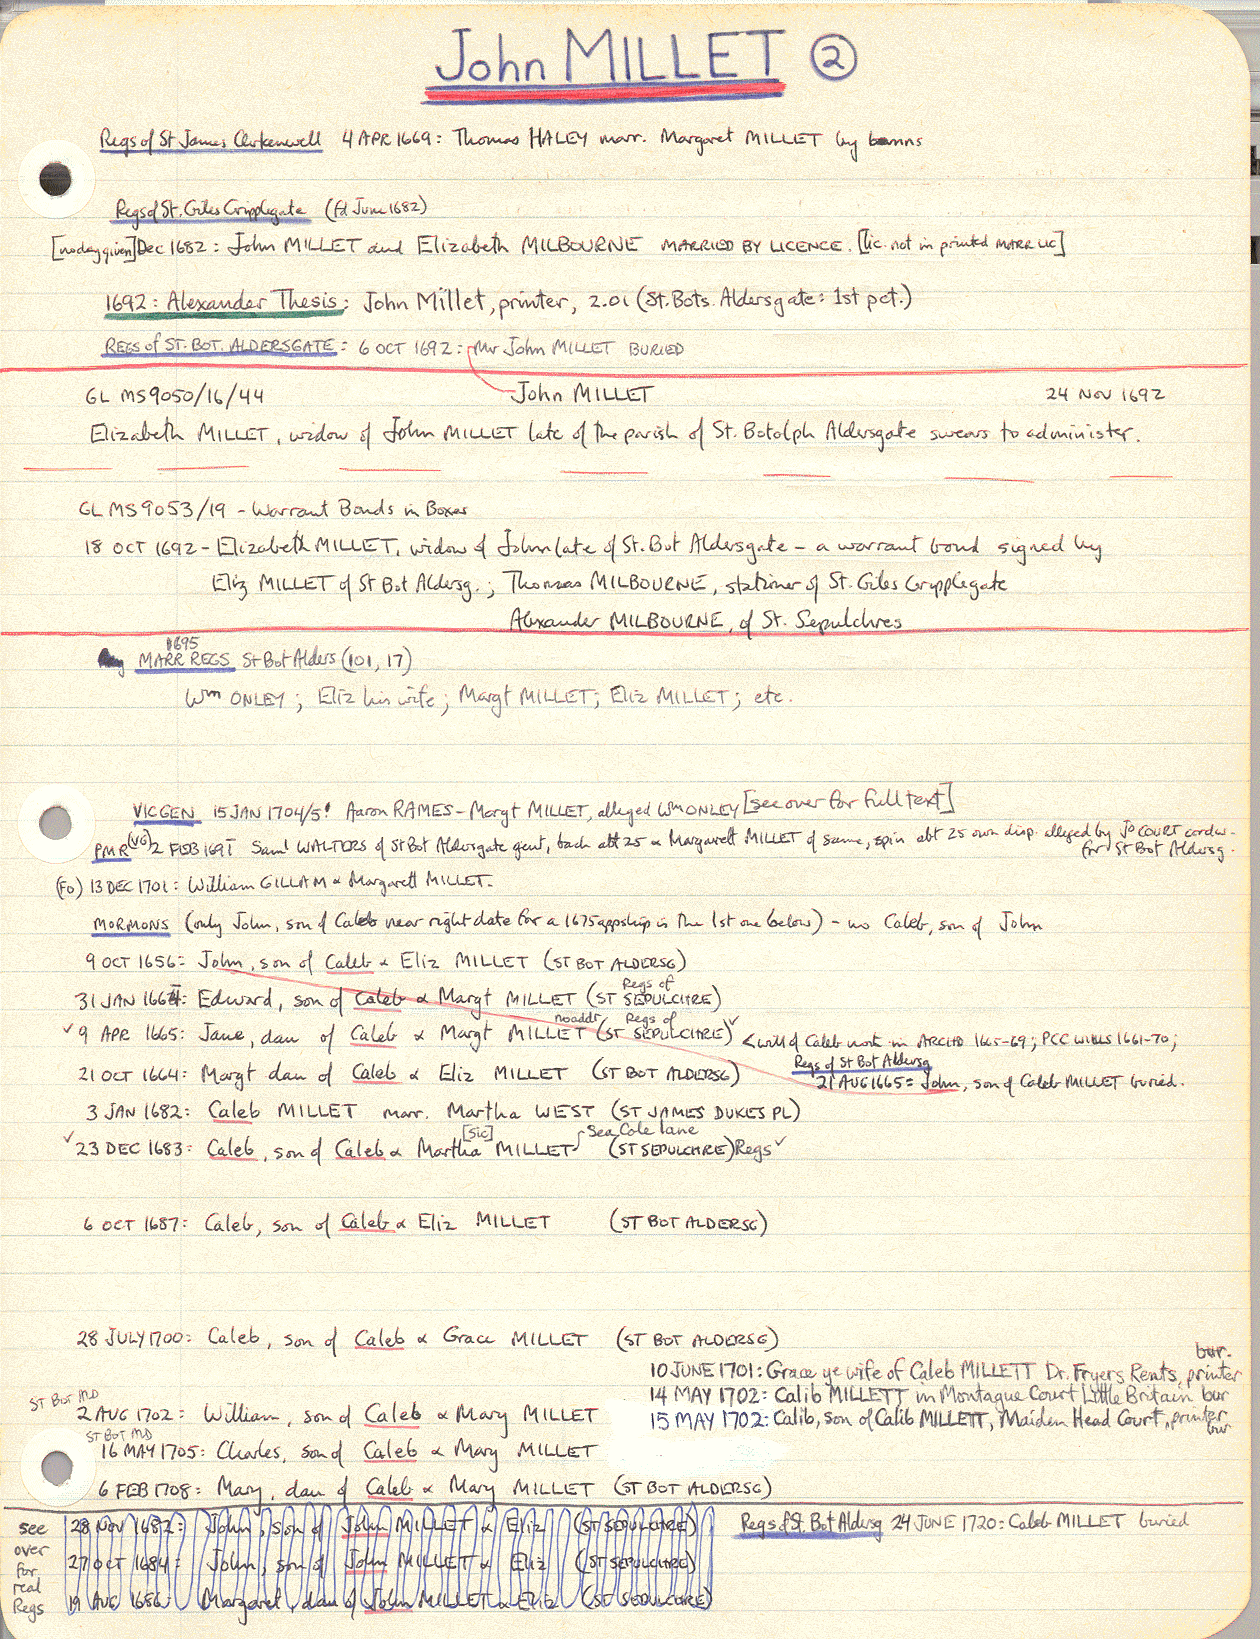 John MILLET ②
Regs of St James Clerkenwell 4 APR 1669: Thomas HALEY marr. Margaret MILLET by banns
Regs of St. Giles Cripplegate (fd June 1682)
[no day given] Dec 1682: John MILLET and Elizabeth MILBOURNE MARRIED BY LICENCE. [lic. not in printed MARR LIC]
1692: Alexander Thesis: John Millet, printer, 2.01 (St. Bots. Aldersgate: 1st pct.)
REGS of ST. BOT. ALDERSGATE: 6 OCT 1692: Mr John MILLET BURIED
GL MS9050/16/44 John MILLET 24 NOV 1692
Elizabeth MILLET, widow of John MILLET late of the parish of St. Botolph Aldersgate swears to administer.
GL MS9053/19 - Warrant Bonds in Boxes
18 OCT 1692 - Elizabeth MILLET, widow of John late of St. Bot Aldersgate - a warrant bond signed by
Eliz MILLET of St Bot Aldersg.; Thomas MILBOURNE, stationer of St. Giles Cripplegate
Alexander MILBOURNE, of St. Sepulchres
1695
MARR REGS St Bot Alders (101, 17)
Wm ONLEY; Eliz his wife; Margt MILLET; Eliz MILLET; etc.
VICGEN 15 JAN 1704/5: Aaron RAMES - Margt MILLET, alleged Wm ONLEY [see over for full text]
PMR (VG) 2 FEB 169 Saml WALTERS of St Bot Aldersgate gent, bach abt 25 & Margarett MILLET of same, spin abt 25 own disp. alleged by Jo COURT cordw.
for St Bot Aldersg.
(Fo) 13 DEC 1701: William GILLAM & Margarett MILLET.
MORMONS (only John, son of Caleb near right date for a 1675 appship is the 1st one below) - no Caleb, son of John
9 OCT 1656: John, son of Caleb & Eliz MILLET (ST BOT ALDERSG)
Regs of
31 JAN 166: Edward, son of Caleb & Margt MILLET (ST SEPULCHRE)
no addr Regs of
✓ 9 APR 1665: Jane, dau of Caleb & Margt MILLET (ST SEPULCHRE) ✓ < will of Caleb not in ARCHD 1665-69; PCC WILLS 1661-70;
Regs of St Bot Aldersg
21 OCT 1664: Margt dau of Caleb & Eliz MILLET (ST BOT ALDERSG) 21 AUG 1665 = John, son of Caleb MILLET buried.
3 JAN 1682: Caleb MILLET marr. Martha WEST (ST JAMES DUKES PL)
[sic] Sea Cole lane
✓ 23 DEC 1683: Caleb, son of Caleb & Martha MILLET (ST SEPULCHRE) Regs ✓
6 OCT 1687: Caleb, son of Caleb & Eliz MILLET (ST BOT ALDERSG)
28 JULY 1700: Caleb, son of Caleb & Grace MILLET (ST BOT ALDERSG)
bur.
10 JUNE 1701: Grace ye wife of Caleb MILLETT Dr. Fryers Rents, printer
14 MAY 1702: Calib MILLETT in Montague Court Little Britain bur
ST BOT MD
2 AUG 1702: William, son of Caleb & Mary MILLET
15 MAY 1702: Calib, son of Calib MILLETT, Maiden Head Court, printer
bur
ST BOT MD
16 MAY 1705: Charles, son of Caleb & Mary MILLET
6 FEB 1708: Mary, dau of Caleb & Mary MILLET (ST BOT ALDERSG)
see over for real Regs
28 NOV 1682: John, son of John MILLET & Eliz (ST SEPULCHRE)
Regs of St. Bot Aldersg 24 JUNE 1720: Caleb MILLET buried
27 OCT 1684: John, son of John MILLET & Eliz (ST SEPULCHRE)
19 AUG 1686: Margaret, dau of John MILLET & Eliz (ST SEPULCHRE)